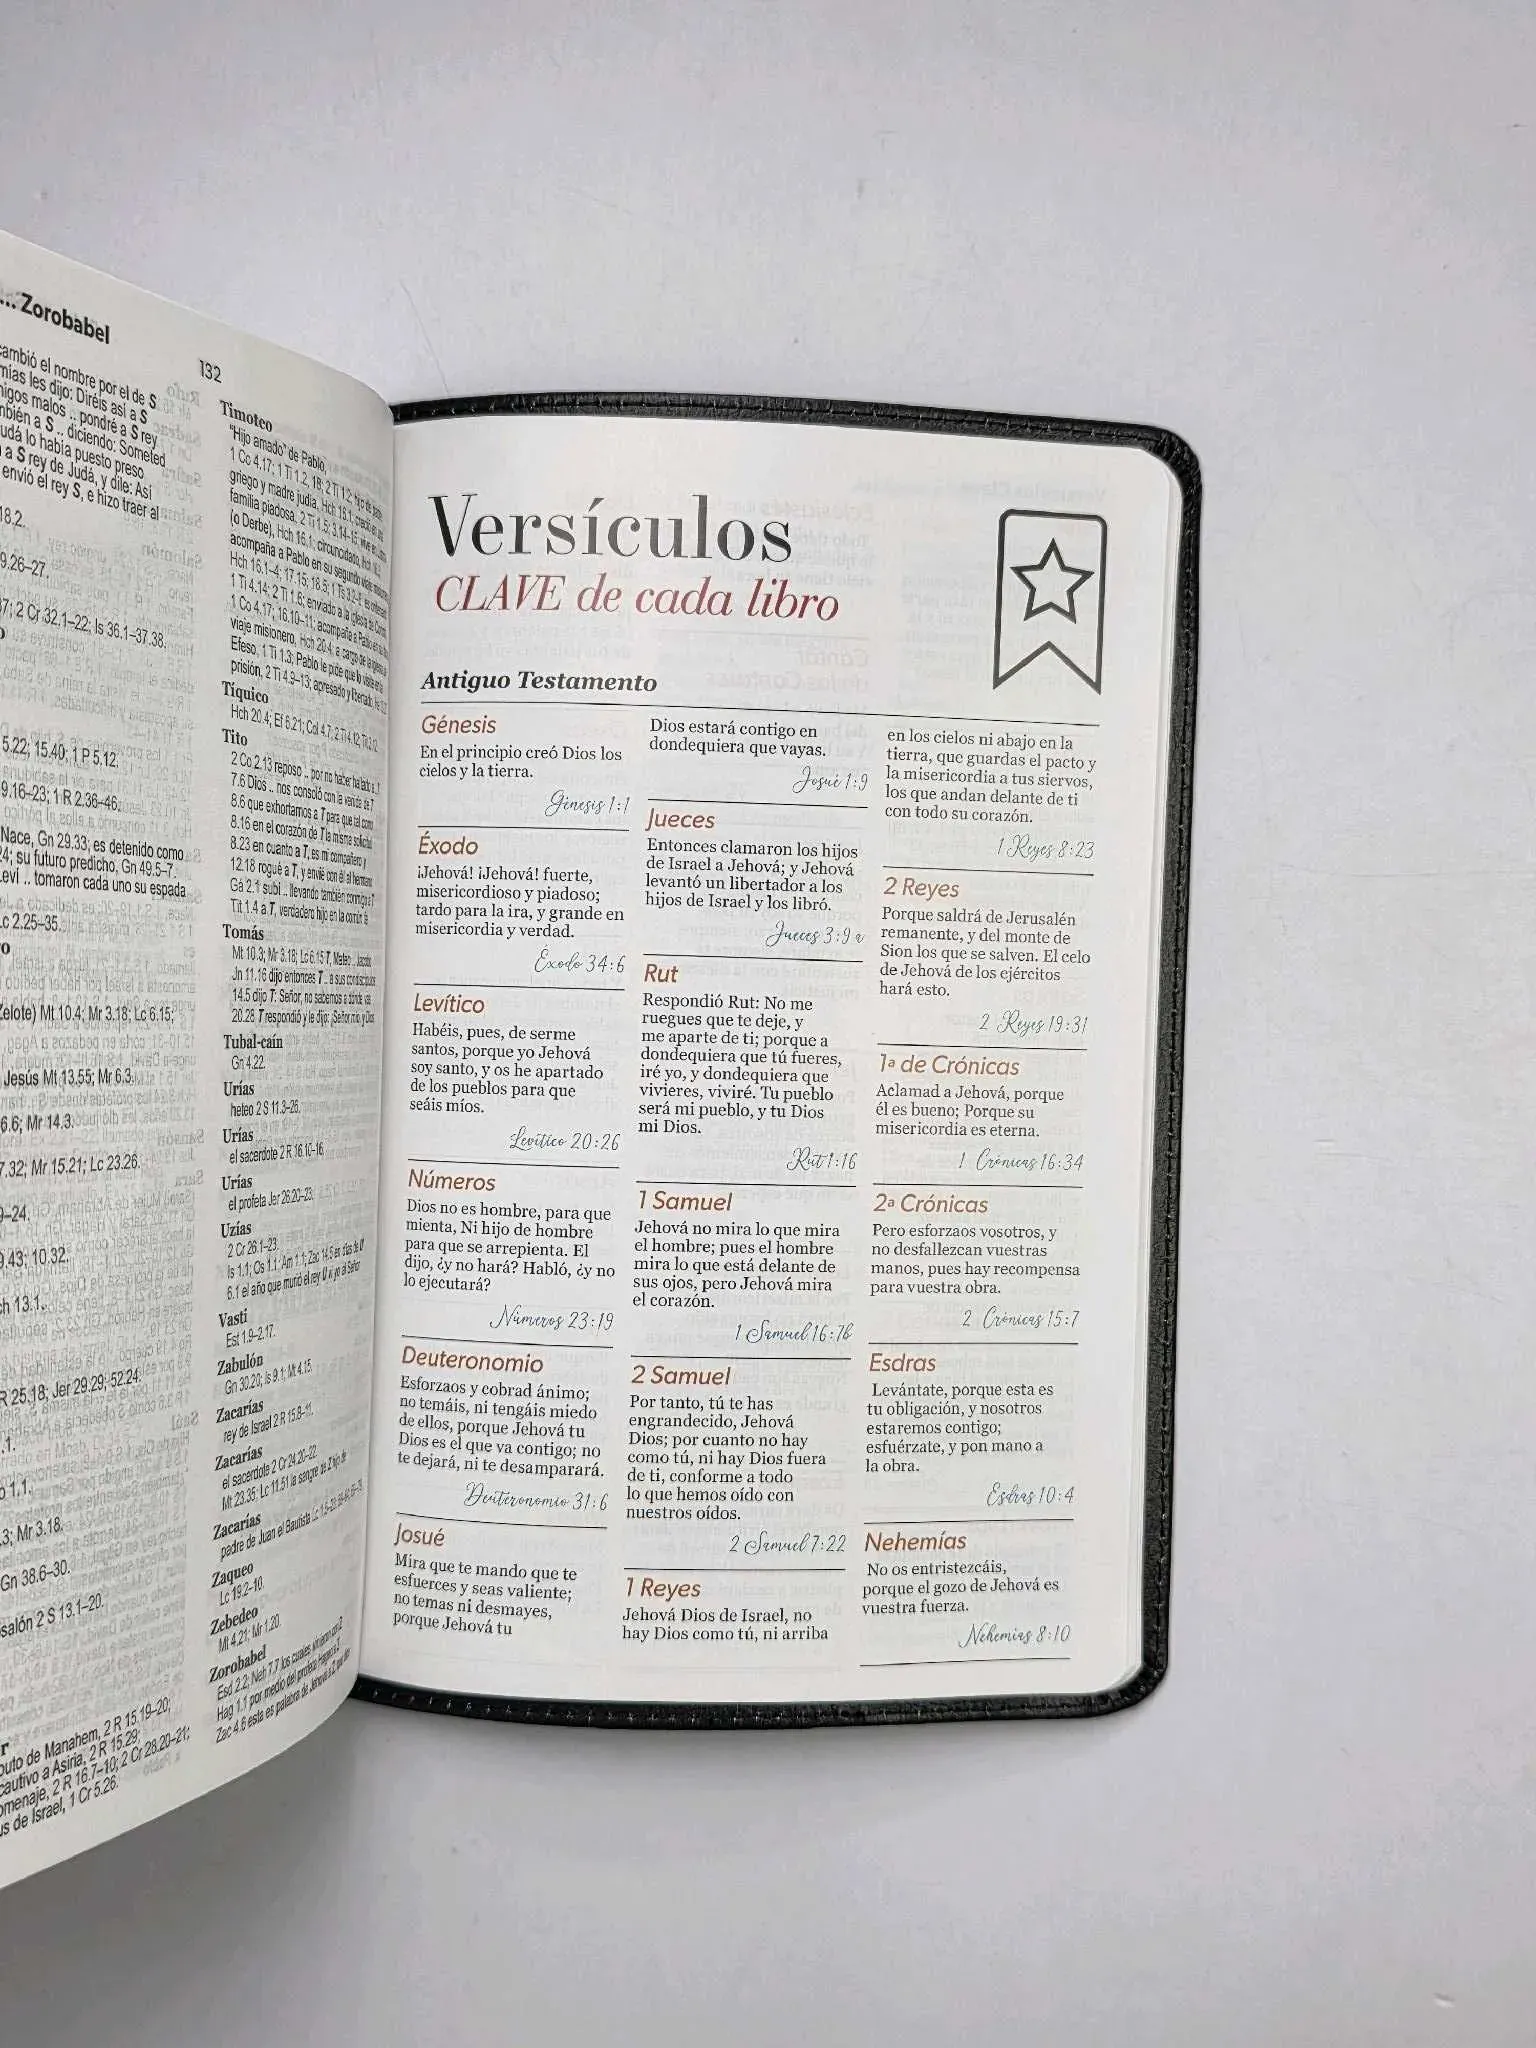 ... Zorobabel
cambió el nombre por el de S
mías les dijo: Diréis así a S
migos malos .. pondré a S rey
mbién a S .. diciendo: Someted
udá lo había puesto preso
a S rey de Judá, y dile: Así
envió el rey S, e hizo traer al
18.2.
9.26–27.
37; 2 Cr 32.1–22; Is 36.1–37.38.
5.22; 15.40; 1 P 5.12.
9.16–23; 1 R 2.36–46.
Nace, Gn 29.33; es detenido como
24; su futuro predicho, Gn 49.5–7.
Leví .. tomaron cada uno su espada
Lc 2.25–35.
Zelote) Mt 10.4; Mr 3.18; Lc 6.15;
Jesús Mt 13.55; Mr 6.3.
6.6; Mr 14.3.
7.32; Mr 15.21; Lc 23.26.
9–24.
9.43; 10.32.
ch 13.1.
R 25.18; Jer 29.29; 52.24.
1.1.
.3; Mr 3.18.
Gn 38.6–30.
salón 2 S 13.1–20.
buto de Manahem, 2 R 15.19–20;
cautivo a Asiria, 2 R 15.29;
omenaje, 2 R 16.7–10; 2 Cr 28.20–21;
us de Israel, 1 Cr 5.26.
132
Timoteo
"Hijo amado" de Pablo,
1 Co 4.17; 1 Ti 1.2, 18; 2 Ti 1.2; hijo de padre
griego y madre judía, Hch 16.1; criado en una
familia piadosa, 2 Ti 1.5; 3.14–15; vive en Listra
(o Derbe), Hch 16.1; circuncidado, Hch 16.3;
acompaña a Pablo en su segundo viaje misionero
Hch 16.1–4; 17.15; 18.5; 1 Ts 3.2–6; es ordenado
1 Ti 4.14; 2 Ti 1.6; enviado a la iglesia de Corinto
1 Co 4.17; 16.10–11; acompaña a Pablo en su
viaje misionero, Hch 20.4; a cargo de la iglesia
Efeso, 1 Ti 1.3; Pablo le pide que lo visite en la
prisión, 2 Ti 4.9–13; apresado y libertado, He 13.23
Tíquico
Hch 20.4; Ef 6.21; Col 4.7; 2 Ti 4.12; Tit 3.12
Tito
2 Co 2.13 reposo .. por no haber hallado a T
7.6 Dios .. nos consoló con la venida de T
8.6 que exhortamos a T para que tal como
8.16 en el corazón de T la misma solicitud
8.23 en cuanto a T, es mi compañero y
12.18 rogué a T, y envié con él al hermano
Gá 2.1 subí .. llevando también conmigo a T
Tit 1.4 a T, verdadero hijo en la común fe
Tomás
Mt 10.3; Mr 3.18; Lc 6.15 T, Mateo .. Jacobo
Jn 11.16 dijo entonces T .. a sus condiscípulos
14.5 dijo T: Señor, no sabemos a dónde vas
20.28 T respondió y le dijo: ¡Señor mío, y Dios
Tubal-caín
Gn 4.22.
Urías
heteo 2 S 11.3–26.
Urías
el sacerdote 2 R 16.10–16
Urías
el profeta Jer 26.20–23.
Uzías
2 Cr 26.1–23.
Is 1.1; Os 1.1; Am 1.1; Zac 14.5 en días de U
6.1 el año que murió el rey U vi yo al Señor
Vasti
Est 1.9–2.17.
Zabulón
Gn 30.20; Is 9.1; Mt 4.15.
Zacarías
rey de Israel 2 R 15.8–11.
Zacarías
el sacerdote 2 Cr 24.20–22.
Mt 23.35; Lc 11.51 la sangre de Z hijo de
Zacarías
padre de Juan el Bautista
Zaqueo
Lc 19.2–10.
Zebedeo
Mt 4.21; Mr 1.20.
Zorobabel
Esd 2.2; Neh 7.7 los cuales vinieron con Z
Hag 1.1 por medio del profeta Hageo a Z
Zac 4.6 esta es palabra de Jehová a Z, que dice
Versículos
CLAVE de cada libro
Antiguo Testamento
Génesis
En el principio creó Dios los
cielos y la tierra.
Génesis 1:1
Éxodo
¡Jehová! ¡Jehová! fuerte,
misericordioso y piadoso;
tardo para la ira, y grande en
misericordia y verdad.
Éxodo 34:6
Levítico
Habéis, pues, de serme
santos, porque yo Jehová
soy santo, y os he apartado
de los pueblos para que
seáis míos.
Levítico 20:26
Números
Dios no es hombre, para que
mienta, Ni hijo de hombre
para que se arrepienta. El
dijo, ¿y no hará? Habló, ¿y no
lo ejecutará?
Números 23:19
Deuteronomio
Esforzaos y cobrad ánimo;
no temáis, ni tengáis miedo
de ellos, porque Jehová tu
Dios es el que va contigo; no
te dejará, ni te desamparará.
Deuteronomio 31:6
Josué
Mira que te mando que te
esfuerces y seas valiente;
no temas ni desmayes,
porque Jehová tu
Dios estará contigo en
dondequiera que vayas.
Josué 1:9
Jueces
Entonces clamaron los hijos
de Israel a Jehová; y Jehová
levantó un libertador a los
hijos de Israel y los libró.
Jueces 3:9 a
Rut
Respondió Rut: No me
ruegues que te deje, y
me aparte de ti; porque a
dondequiera que tú fueres,
iré yo, y dondequiera que
vivieres, viviré. Tu pueblo
será mi pueblo, y tu Dios
mi Dios.
Rut 1:16
1 Samuel
Jehová no mira lo que mira
el hombre; pues el hombre
mira lo que está delante de
sus ojos, pero Jehová mira
el corazón.
1 Samuel 16:7b
2 Samuel
Por tanto, tú te has
engrandecido, Jehová
Dios; por cuanto no hay
como tú, ni hay Dios fuera
de ti, conforme a todo
lo que hemos oído con
nuestros oídos.
2 Samuel 7:22
1 Reyes
Jehová Dios de Israel, no
hay Dios como tú, ni arriba
en los cielos ni abajo en la
tierra, que guardas el pacto y
la misericordia a tus siervos,
los que andan delante de ti
con todo su corazón.
1 Reyes 8:23
2 Reyes
Porque saldrá de Jerusalén
remanente, y del monte de
Sion los que se salven. El celo
de Jehová de los ejércitos
hará esto.
2 Reyes 19:31
1ª de Crónicas
Aclamad a Jehová, porque
él es bueno; Porque su
misericordia es eterna.
1 Crónicas 16:34
2ª Crónicas
Pero esforzaos vosotros, y
no desfallezcan vuestras
manos, pues hay recompensa
para vuestra obra.
2 Crónicas 15:7
Esdras
Levántate, porque esta es
tu obligación, y nosotros
estaremos contigo;
esfuérzate, y pon mano a
la obra.
Esdras 10:4
Nehemías
No os entristezcáis,
porque el gozo de Jehová es
vuestra fuerza.
Nehemías 8:10